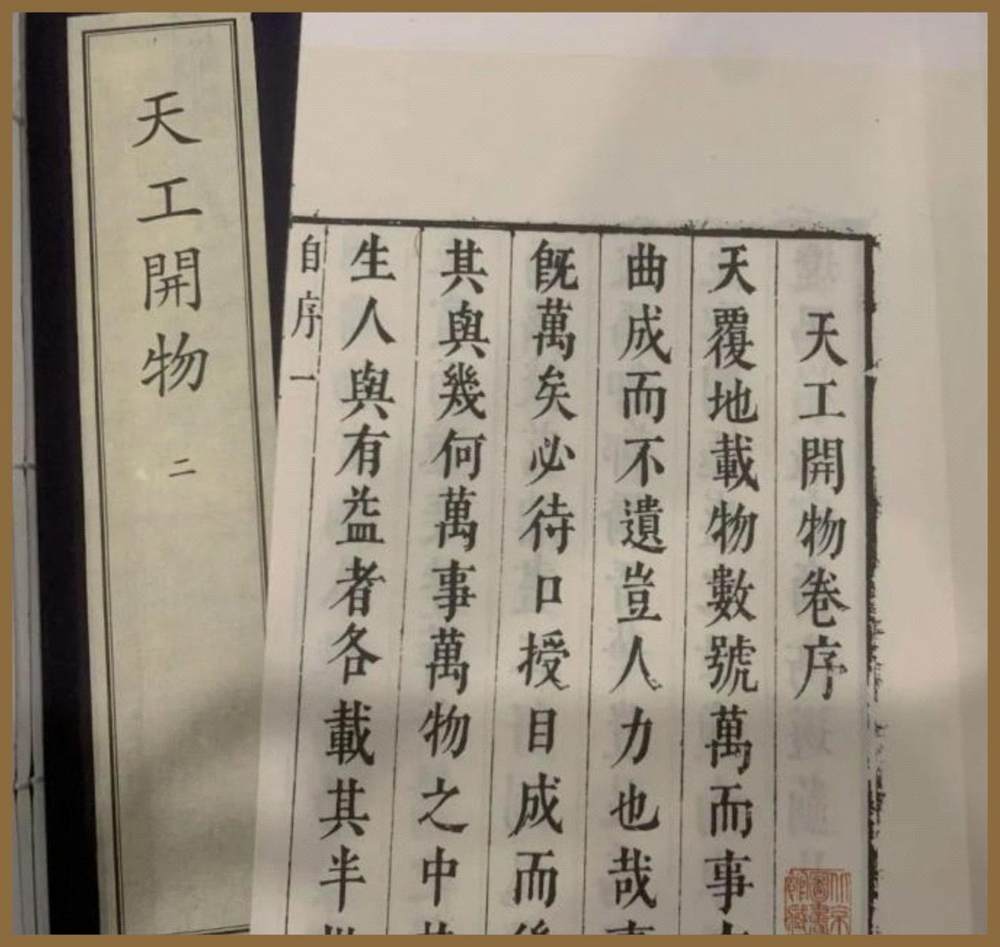 天工開物 二
天工開物卷序
天覆地載物數號萬而事
曲成而不遺豈人力也哉
旣萬矣必待口授目成而
其與幾何萬事萬物之中
生人與有益者各載其半
自序 一